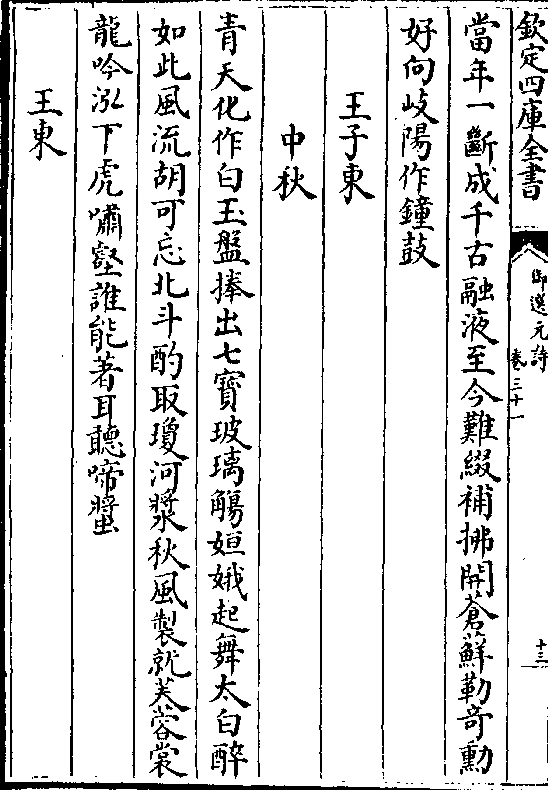 欽定四庫全書
御選元詩
卷三十一
十三
當年一斷成千古融液至今難綴補拂開蒼蘚勒奇勳
好向岐陽作鐘鼓
王子東
中秋
青天化作白玉盤捧出七寶玻璃觴姮娥起舞太白醉
如此風流胡可忘北斗酌取瓊河漿秋風製就芙蓉裳
龍吟泓下虎嘯壑誰能著耳聽啼螿
王東